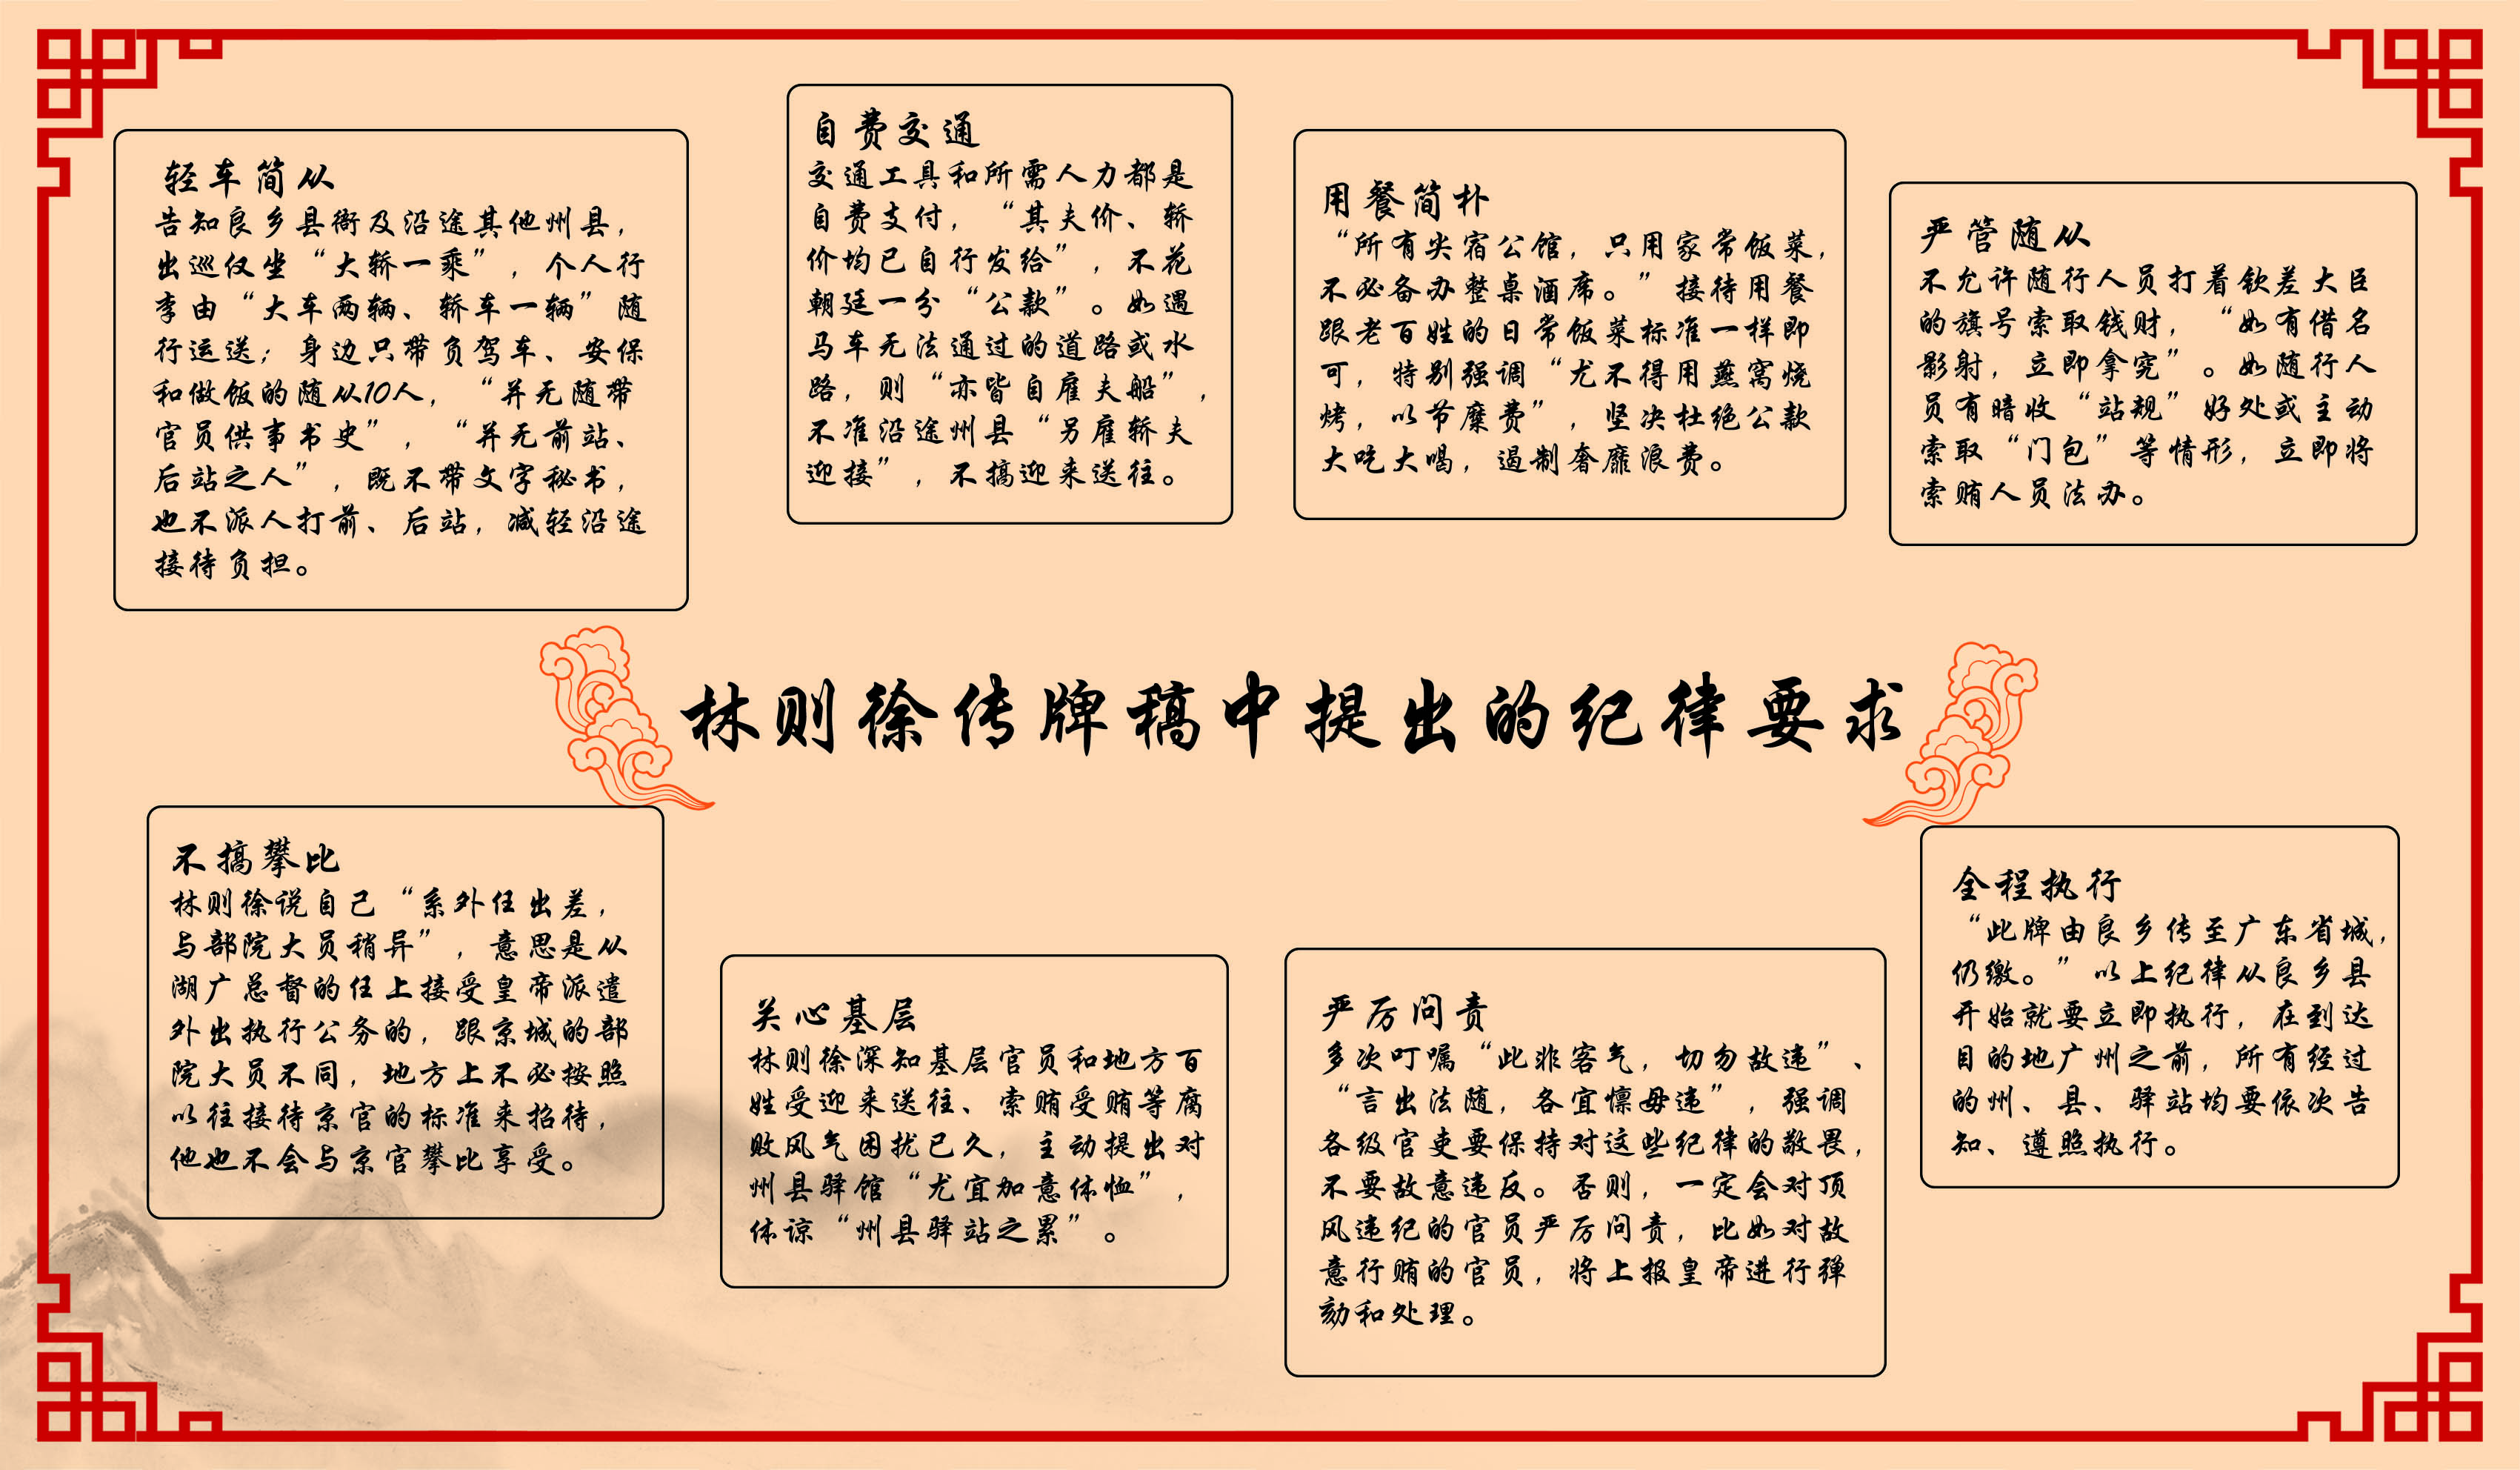 轻车简从
告知良乡县衙及沿途其他州县，
出巡仅坐“大轿一乘”，个人行
李由“大车两辆、轿车一辆”随
行运送；身边只带负驾车、安保
和做饭的随从10人，“并无随带
官员供事书史”，“并无前站、
后站之人”，既不带文字秘书，
也不派人打前、后站，减轻沿途
接待负担。
自费交通
交通工具和所需人力都是
自费支付，“其夫价、轿
价均已自行发给”，不花
朝廷一分“公款”。如遇
马车无法通过的道路或水
路，则“亦皆自雇夫船”，
不准沿途州县“另雇轿夫
迎接”，不搞迎来送往。
用餐简朴
“所有尖宿公馆，只用家常饭菜，
不必备办整桌酒席。”接待用餐
跟老百姓的日常饭菜标准一样即
可，特别强调“尤不得用燕窝烧
烤，以节糜费”，坚决杜绝公款
大吃大喝，遏制奢靡浪费。
严管随从
不允许随行人员打着钦差大臣
的旗号索取钱财，“如有借名
影射，立即拿究”。如随行人
员有暗收“站规”好处或主动
索取“门包”等情形，立即将
索贿人员法办。
林则徐传牌稿中提出的纪律要求
不搞攀比
林则徐说自己“系外任出差，
与部院大员稍异”，意思是从
湖广总督的任上接受皇帝派遣
外出执行公务的，跟京城的部
院大员不同，地方上不必按照
以往接待京官的标准来招待，
他也不会与京官攀比享受。
关心基层
林则徐深知基层官员和地方百
姓受迎来送往、索贿受贿等腐
败风气困扰已久，主动提出对
州县驿馆“尤宜加意体恤”，
体谅“州县驿站之累”。
严厉问责
多次叮嘱“此非客气，切勿故违”、
“言出法随，各宜懔毋违”，强调
各级官吏要保持对这些纪律的敬畏，
不要故意违反。否则，一定会对顶
风违纪的官员严厉问责，比如对故
意行贿的官员，将上报皇帝进行弹
劾和处理。
全程执行
“此牌由良乡传至广东省城，
仍缴。”以上纪律从良乡县
开始就要立即执行，在到达
目的地广州之前，所有经过
的州、县、驿站均要依次告
知、遵照执行。